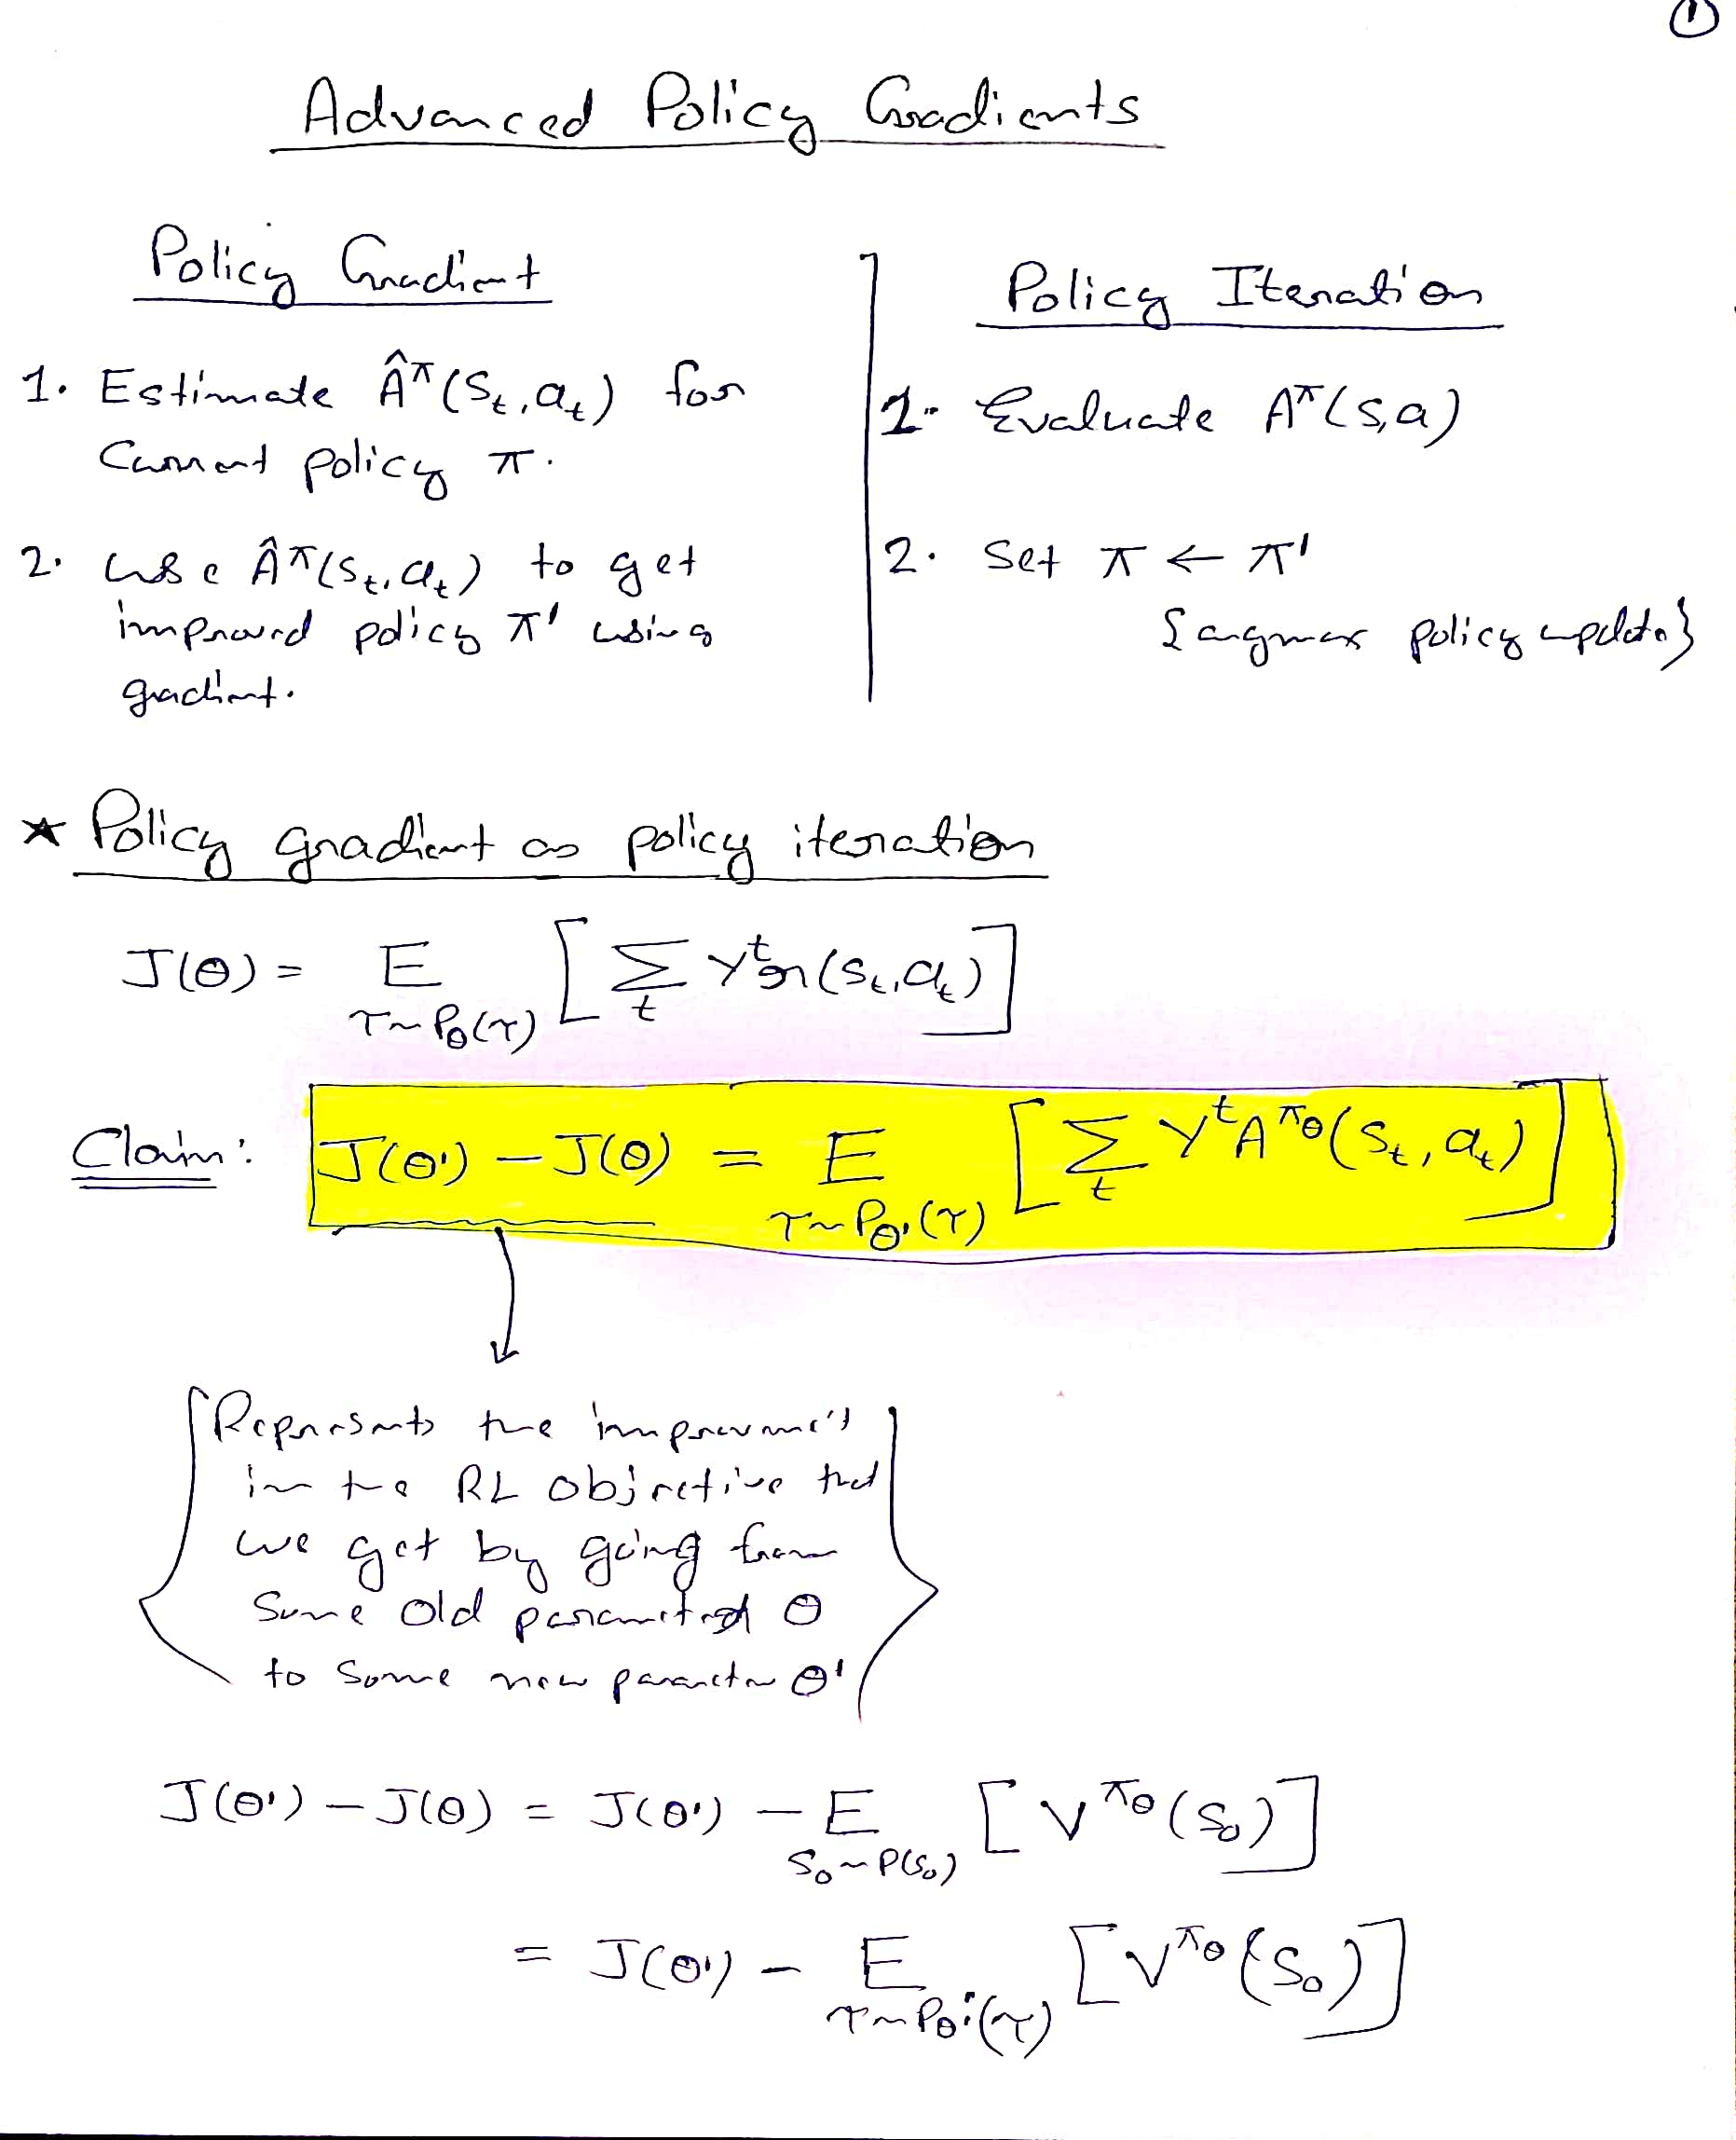 ①
Advanced Policy Gradients
Policy Gradient
1. Estimate Â^π(s_t, a_t) for
Current policy π.
2. Use Â^π(s_t, a_t) to get
improved policy π' using
gradient.
Policy Iteration
1. Evaluate A^π(s,a)
2. Set π ← π'
{argmax policy update}
* Policy gradient as policy iteration
J(θ) = E_{τ~P_θ(τ)} [Σ_t γ^t r(s_t, a_t)]
Claim: J(θ') - J(θ) = E_{τ~P_θ'(τ)} [Σ_t γ^t A^{π_θ}(s_t, a_t)]
{Represents the improvement
in the RL objective that
we get by going from
Some old parameter θ
to some new parameter θ'}
J(θ') - J(θ) = J(θ') - E_{s_0~P(s_0)} [V^{π_θ}(s_0)]
= J(θ') - E_{τ~P_θ'(τ)} [V^{π_θ}(s_0)]